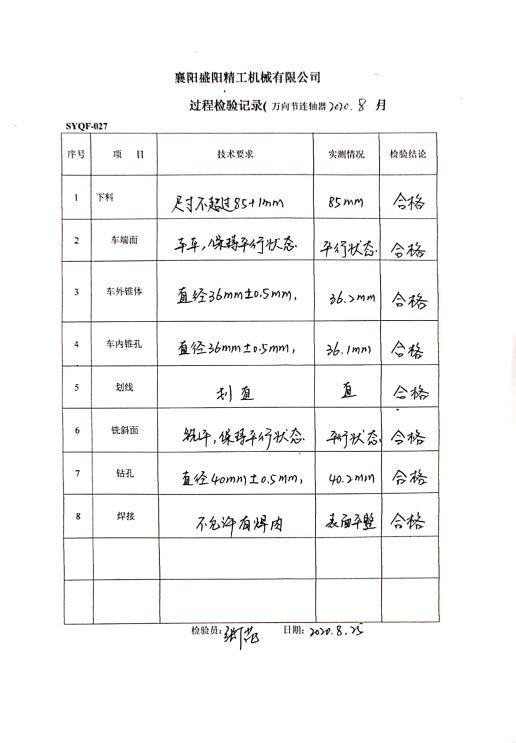 襄阳盛阳精工机械有限公司
过程检验记录(万向节连轴器2020.8月
SYQF-027
序号 项 目 技术要求 实测情况 检验结论
1 下料 尺寸不超过85+1mm 85mm 合格
2 车端面 平车,保持平行状态. 平行状态. 合格
3 车外锥体 直径36mm±0.5mm, 36.2mm 合格
4 车内锥孔 直径36mm±0.5mm, 36.1mm 合格
5 划线 划直 直 合格
6 铣斜面 铣平,保持平行状态. 平行状态. 合格
7 钻孔 直径40mm±0.5mm, 40.2mm 合格
8 焊接 不允许有焊肉 表面平整 合格
检验员: 日期: 2020.8.25